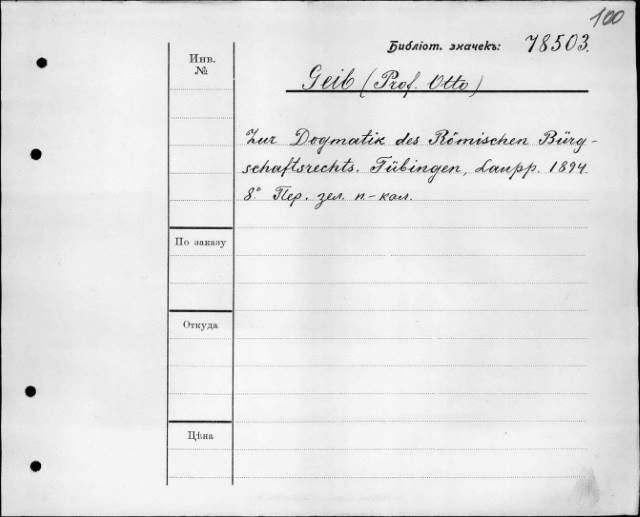 100
Библіот. значекъ: 78503.
Инв.
№
Geib (Prof. Otto)
Zur Dogmatik des Römischen Bürg-
schaftsrechts. Tübingen, Laupp. 1894
8° Пер. зел. п-кол.
По заказу
Откуда
Цѣна